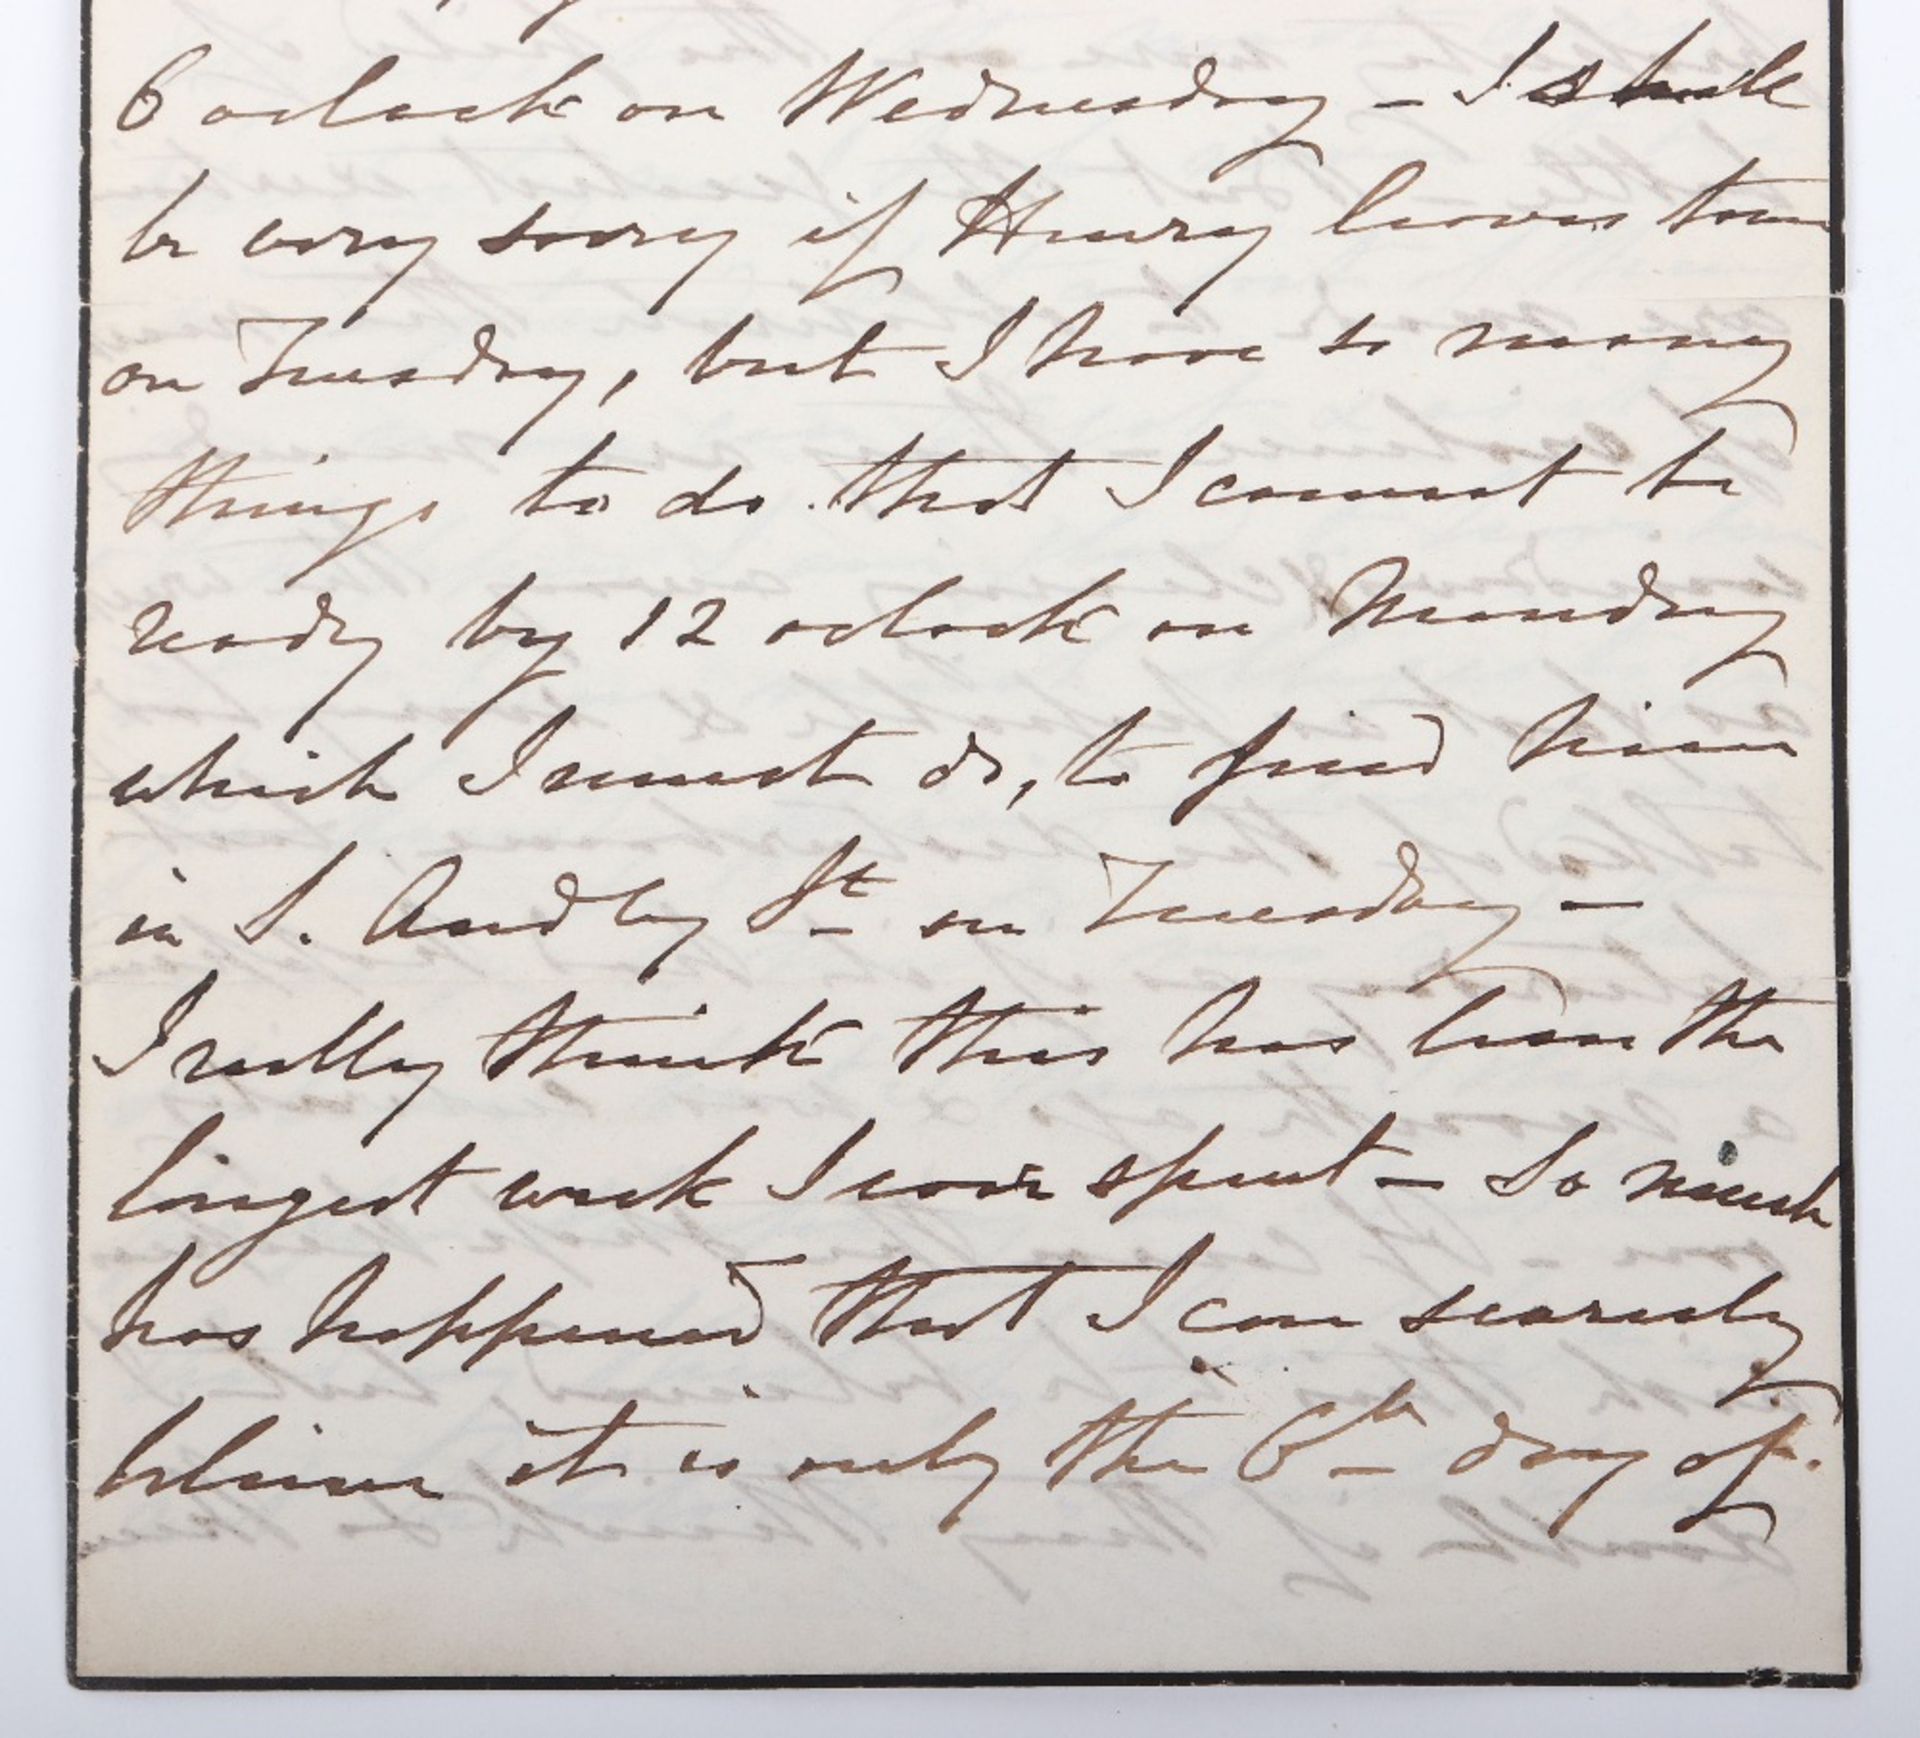 6 oclock on Wednesday – I shall
be very sorry if Henry leaves town
on Tuesday, but I have so many
things to do that I cannot be
ready by 12 oclock on Monday
which I must do, to find him
in S. Audley St on Tuesday –
I really think this has been the
longest week I ever spent – So much
has happened that I can scarcely
believe it is only the 6th day of